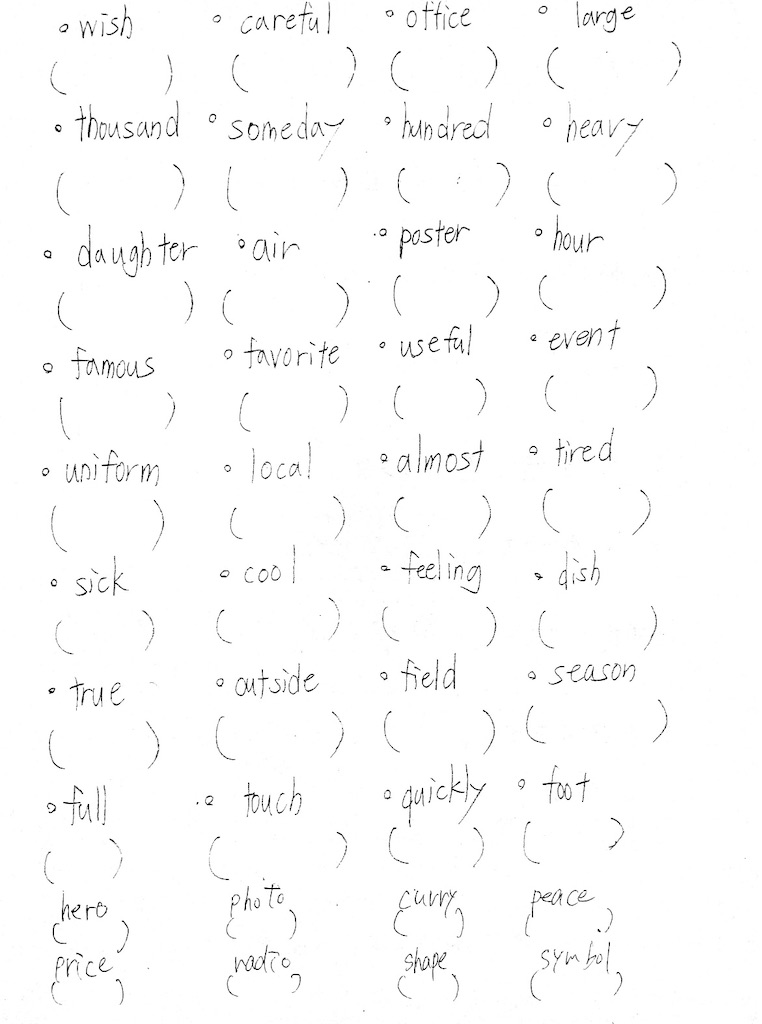 ∘ wish ∘ careful ∘ office ∘ large
( ) ( ) ( ) ( )
∘ thousand ∘ someday ∘ hundred ∘ heavy
( ) ( ) ( ) ( )
∘ daughter ∘ air ∘ poster ∘ hour
( ) ( ) ( ) ( )
∘ famous ∘ favorite ∘ useful ∘ event
( ) ( ) ( ) ( )
∘ uniform ∘ local ∘ almost ∘ tired
( ) ( ) ( ) ( )
∘ sick ∘ cool ∘ feeling ∘ dish
( ) ( ) ( ) ( )
∘ true ∘ outside ∘ field ∘ season
( ) ( ) ( ) ( )
∘ full ∘ touch ∘ quickly ∘ foot
( ) ( ) ( ) ( )
hero photo curry peace
( ) ( ) ( ) ( )
price radio shape symbol
( ) ( ) ( ) ( )